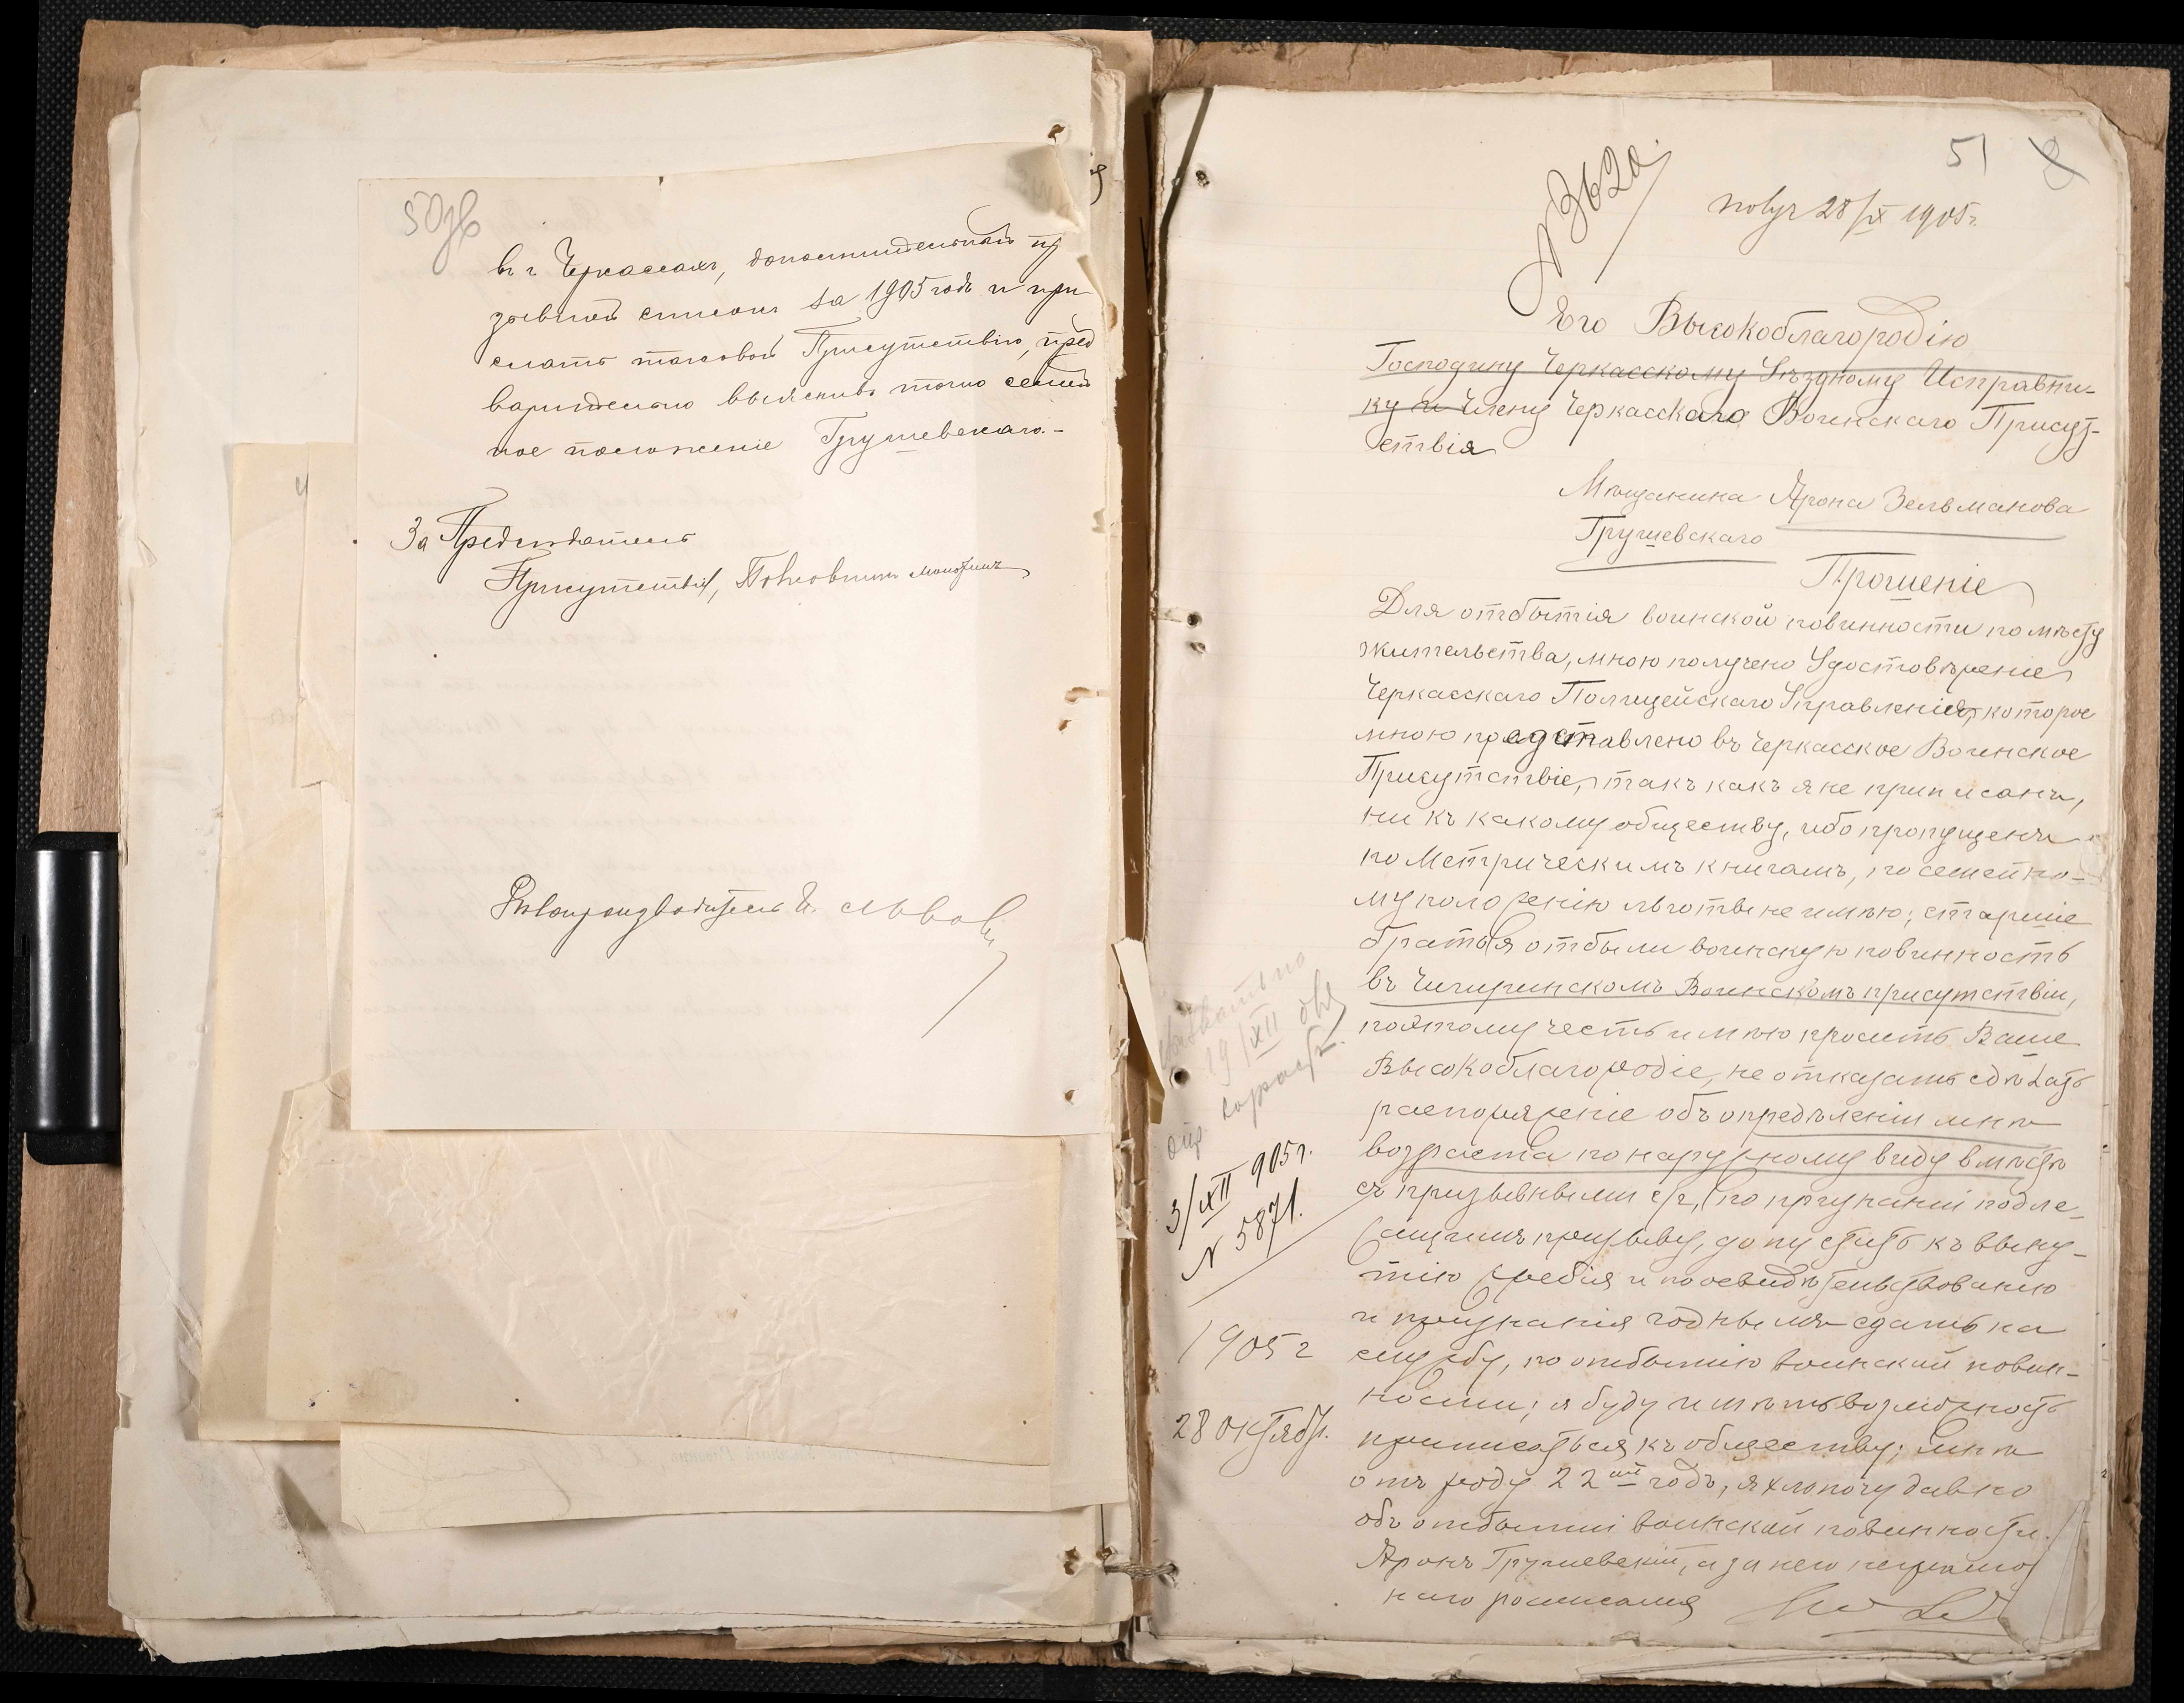 50об
въ г Черкассахъ, дополнительный при
зывной списокъ за 1905 годъ и при
слать таковой Присутствію, пред
варительно выяснивъ точно семей
ное положеніе Грушевскаго.-
За Предсѣдателя
Присутствія, Полковникъ
Дѣлопроизводитель И. Львовъ
51
№ 3620.
Получ 28/IX 1905 г.
Его Высокоблагородію
Господину Черкасскому Уѣздному Исправни-
ку и Члену Черкасскаго Воинскаго Присут-
ствія
Мѣщанина Арона Зельманова
Грушевскаго
Прошеніе
Для отбытія воинской повинности по мѣсту
жительства, мною получено Удостовѣреніе
Черкасскаго Полицейскаго Управленія, которое
мною представлено въ Черкасское Воинское
Присутствіе, такъ какъ я не приписанъ,
ни къ какому обществу, ибо пропущенъ
по Метрическимъ книгамъ, по семейно-
му положенію льготы не имѣю; старшіе
братья отбыли воинскую повинность
въ Чигиринскомъ Воинскомъ присутствіи,
поэтому честь имѣю просить Ваше
Высокоблагородіе, не отказать сдѣлать
распоряженіе объ опредѣленіи мнѣ
возраста по наружному виду вмѣстѣ
съ призывными с/г, по признаніи подле-
жащимъ призыву, допустить къ выну-
тію жребія и по освидѣтельствованію
и признанія годнымъ сдать на
службу, по отбытію воинской повин-
ности; я буду имѣть возможность
приписаться къ обществу; мнѣ
отъ роду 22ий годъ, я хлопочу давно
объ отбытіи воинской повинности.
Аронъ Грушевскій, а за него неграмот
наго росписался
19/XII
3/XII 905 г.
№ 5871.
1905 г
28 Октября.